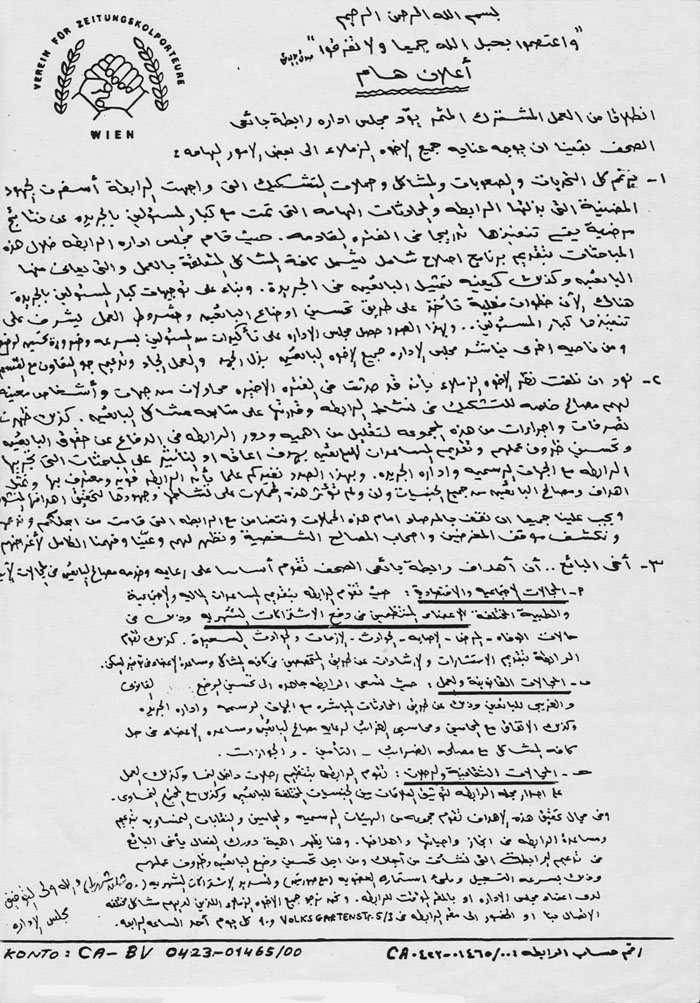 بسم الله الرحمن الرحيم
"واعتصموا بحبل الله جميعا ولا تفرقوا"
VEREIN FÜR ZEITUNGSKOLPORTEURE
WIEN
أعلان هام
انطلاقا من العمل المشترك المثمر يود مجلس اداره رابطة بائعى
الصحف بفيينا ان يوجه عنايه جميع الاخوه الزملاء الى بعض الامور الهامه :
١- برغم كل التحديات والصعوبات والمشاكل وحملات التشكيك التى واجهت الرابطة أسفرت الجهود
المضنية التى بذلتها الرابطه والمحادثات الهامه التى تمت مع كبار المسئولين بالجريده عن نتائج
مرضية يتم تنفيذها تدريجا فى الفتره القادمه . حيث قام مجلس اداره الرابطه خلال هذه
المباحثات بتقديم برنامج اصلاح شامل يشمل كافة المشاكل المتعلقة بالعمل والتى يعانى منها
البائعيه وكذلك كيفيه تمثيل البائعيه فى الجريدة . وبناء على توجيهات كبار المسئولين بالجريدة
هناك الآن خطوات فعلية تأخذ على طريق تحسين اوضاع البائعيه وشروط العمل يشرف على
تنفيذها كبار المسئولين .. وبهذا الصدد حصل مجلس الاداره على تأكيدات من المسئولين بسرعه وضرورة تحسين الوضع
ومن ناحيه اخرى يناشد مجلس الاداره جميع الاخوه البائعيه بذل الجهد والعمل الجاد وتدعيم جو التعاون مع
٢- نود ان نلفت نظر الاخوه الزملاء بأنه قد حدثت فى الفتره الاخيره محاولات من جهات وأشخاص معينة
لهم مصالح خاصه للتشكيك فى نشاط الرابطه وقدرتها على متابعه مشاكل البائعيه . كذلك ظهرت
تصرفات واجراءات من هذه المجموعه لتقليل من اهميه ودور الرابطه فى الدفاع عن حقوق البائعيه
وتحسين ظروف عملهم وتقديم المساعدات للبائعيه بهدف اعاقه او التأثير على المباحثات التى تجريها
الرابطه مع الجهات الرسميه واداره الجريده . وبهذا الصدد نفيدكم علما بأنه الرابطه قويه ومعترف بها وتمثل
اهداف ومصالح البائعيه من جميع الجنسيات ولن ولم تؤثر هذه الحملات على نشاطها وجهودها لتحقيق اهدافها
ويجب علينا جميعا ان نقف بالمرصاد امام هذه الحملات ونتضامن مع الرابطه التى قامت من اجلكم
ونكشف موقف المغرضين واصحاب المصالح الشخصية ونظهر لهم وعينا وفهمنا الكامل لأغراضهم
٣- أخى البائع .. أن أهداف رابطة بائعى الصحف تقوم أساسا على رعايه وخدمه مصالح البائعيه فى المجالات
أ- المجالات الاجتماعيه والاقتصادية : حيث تقوم الرابطه بتقديم المساعدات الماليه والاجتماعية
والطبية المختلفة للاعضاء المنتظمين فى دفع الاشتراكات الشهريه وذلك فى
حالات الوفاه - المرض - الاصابه - الحوادث - الازمات والحوادث السعيدة . كذلك تقوم
الرابطة بتقديم الاستشارات والارشادات عن طريق المتخصصين فى كافه المشاكل ومساعدة الاعضاء
ب- المجالات القانونية والعمل : حيث تسعى الرابطه جاهده الى تحسين الوضع القانونى
والضريبى للبائعين وذلك عن طريق المحادثات المباشره مع الجهات الرسميه واداره الجريده
وكذلك الاتفاق مع المحامين ومحاسبى الضرائب لرعايه مصالح البائعيه ومساعده الاعضاء فى حل
كافه المشاكل مع مصالحه الضرائب - التأمين - والجوازات .
جـ- المجالات الثقافية والرحلات : تقوم الرابطه بتنظيم رحلات داخل النمسا وكذلك العمل
على اصدار مجله الرابطه لتوثيق العلاقات بين الجنسيات المختلفة للبائعيه وكذلك مع المجتمع النمساوى .
وفى مجال تحقيق هذه الاهداف تقوم مجموعه من الهيئات الرسميه والمحامين والنقابات النمساويه بتدعيم
ومساعدة الرابطه فى انجاز واجباتها واهدافها . وهنا يظهر اهمية دورك الفعال يأخى البائع
فى تدعيم الرابطة التى تشكلت من أجلك ومن اجل تحسين وضع البائعيه وظروف عملهم
وذلك بسرعه التسجيل وملئ استماره العضويه وتسديد الاشتراكات الشهريه ( ٥٠ شلنا شهريا )
لدى اعضاء مجلس الاداره او بالمقر المؤقت للرابطه . ونحن نرجو جميع الاخوه الزملاء الذين لديهم مشاكل مختلفه
الاتصال بنا او الحضور الى مقر الرابطه فى VOLKSGARTENSTR. 5/3 كل يوم أحد الساعه الرابعه .
والله ولى التوفيق
مجلس الاداره
KONTO : CA - BV 0423-01465/00
رقم حساب الرابطه : CA ٠٤٢٣-٠١٤٦٥/٠٠